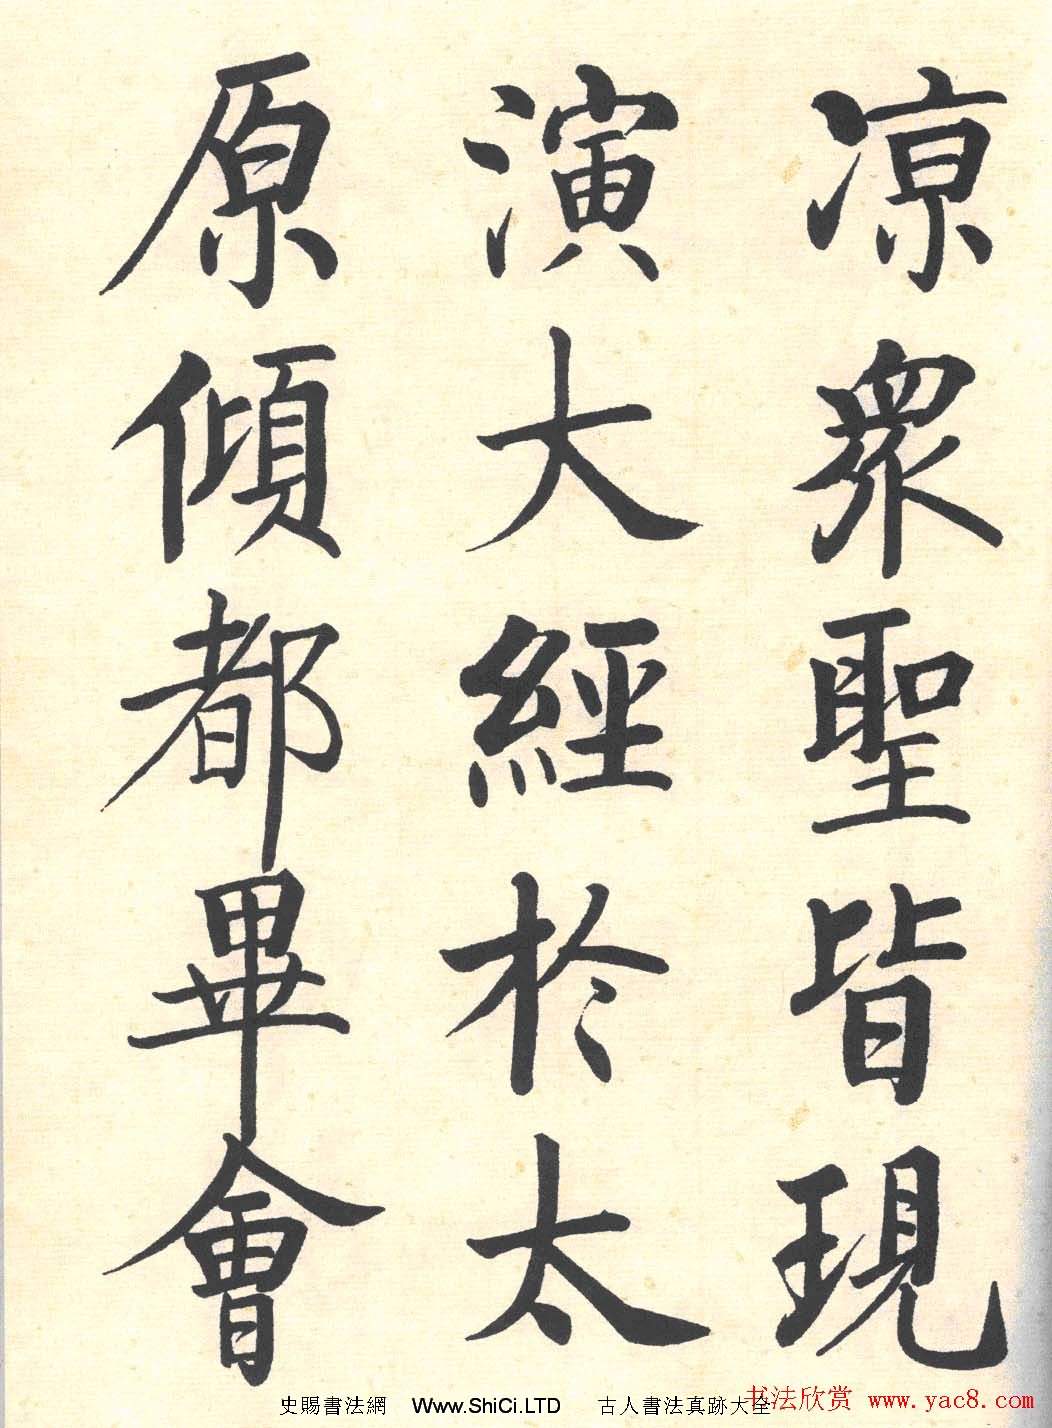 凉衆聖皆現
演大經於太
原傾都畢會
史賜書法網 Www.ShiCi.LTD 古人書法真跡大全
书法欣赏 www.yac8.com